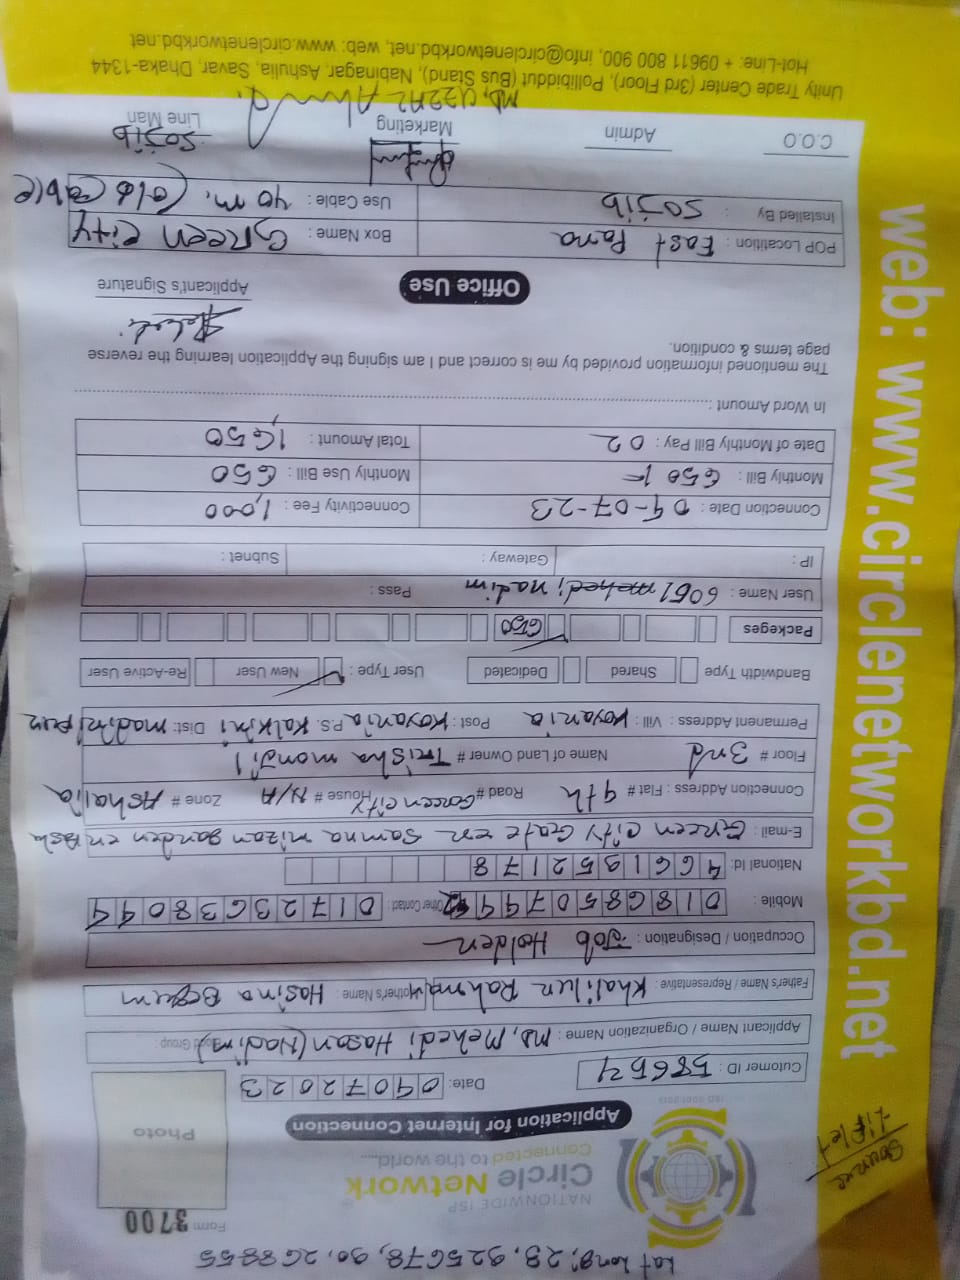 Lat Long: 23.925678, 90.268855
Form 3700
NATIONWIDE ISP
Circle Network
Connected to the world.....
Photo
Application for Internet Connection
Source
Liflet
Cutomer ID : 58654
Date: 04072023
Applicant Name / Organization Name : MD. Mehedi Hasan (Nadim)
Father's Name / Representative : Khalilur Rahman Mother's Name : Hasina Begum
Occupation / Designation : Job Holder
Mobile : 01868507944 Other Contact : 01723638044
National Id: 4661352178
E-mail : Green City Gate er Samna mizan garden er
Connection Address : Flat # 4th Road # Green city House # N/A Zone # Ashalia
Floor # 3nd Name of Land Owner # Trisha monjil
Permanent Address : Vill : Koyaria Post : Koyaria P.S. Kalkini Dist: madaripur
Bandwidth Type Shared Dedicated User Type : New User Re-Active User
Packeges 650
User Name : 6051 nadim Pass :
IP : Gateway : Subnet :
Connection Date : 04-07-23 Connectivity Fee : 1,000
Monthly Bill : 650 Monthly Use Bill : 650
Date of Monthly Bill Pay : 02 Total Amount : 1,650
In Word Amount :
The mentioned information provided by me is correct and I am signing the Application learning the reverse
page terms & condition.
Applicant's Signature
Office Use
POP Locatition : East Para Box Name : Green City
Installed By : Sojib Use Cable : 40 m. (old cable
C.O.O Admin Marketing Line Man
Sojib
MD. UZZAL Ahmed.
Unity Trade Center (3rd Floor), Pollibiddut (Bus Stand), Nabinagar, Ashulia, Savar, Dhaka-1344
Hot-Line: + 09611 800 900, info@circlenetworkbd.net, web: www.circlenetworkbd.net
web: www.circlenetworkbd.net